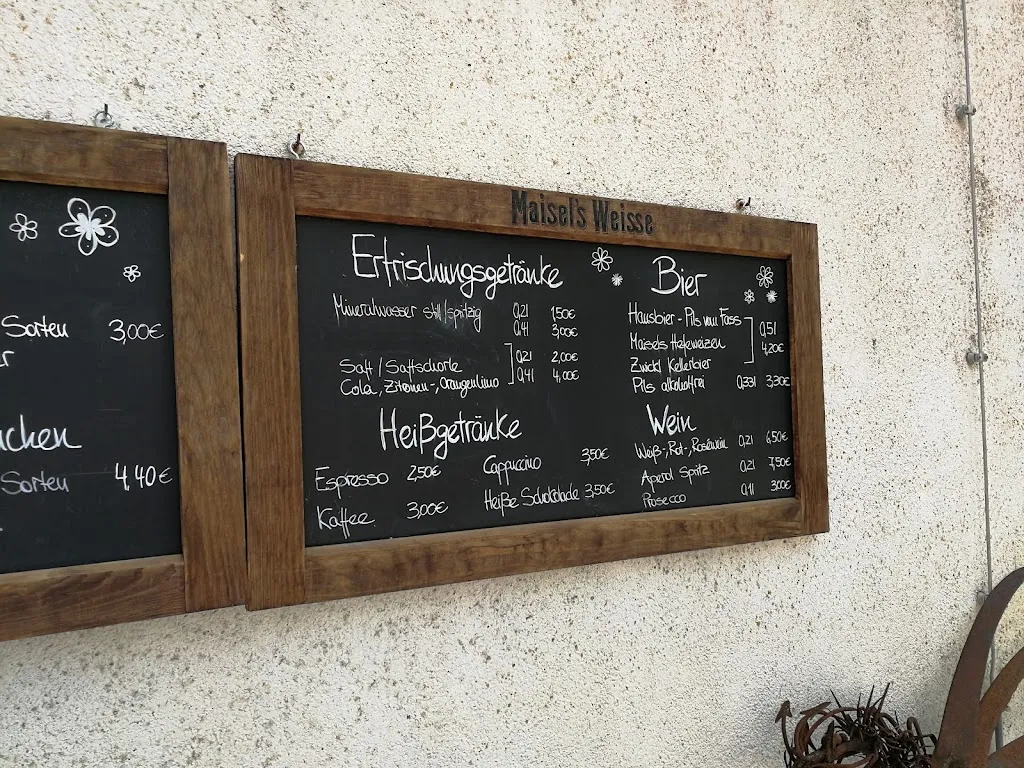 Sorten 3,00€
uchen
Sorten 4,40€
Maisel's Weisse
Erfrischungsgetränke
Mineralwasser still/spritzig 0,2l 1,50€
0,4l 3,00€
Saft / Saftschorle 0,2l 2,00€
Cola, Zitronen-, Orangenlimo 0,4l 4,00€
Heißgetränke
Espresso 2,50€
Cappuccino 3,50€
Kaffee 3,00€
Heiße Schokolade 3,50€
Bier
Hausbier - Pils vom Fass
Maisels Hefeweizen
0,5l
4,20€
Zwickl Kellerbier
Pils alkoholfrei 0,33l 3,30€
Wein
Weiß-, Rot-, Roséwein 0,2l 6,50€
Aperol Spritz 0,2l 7,50€
Prosecco 0,1l 3,00€